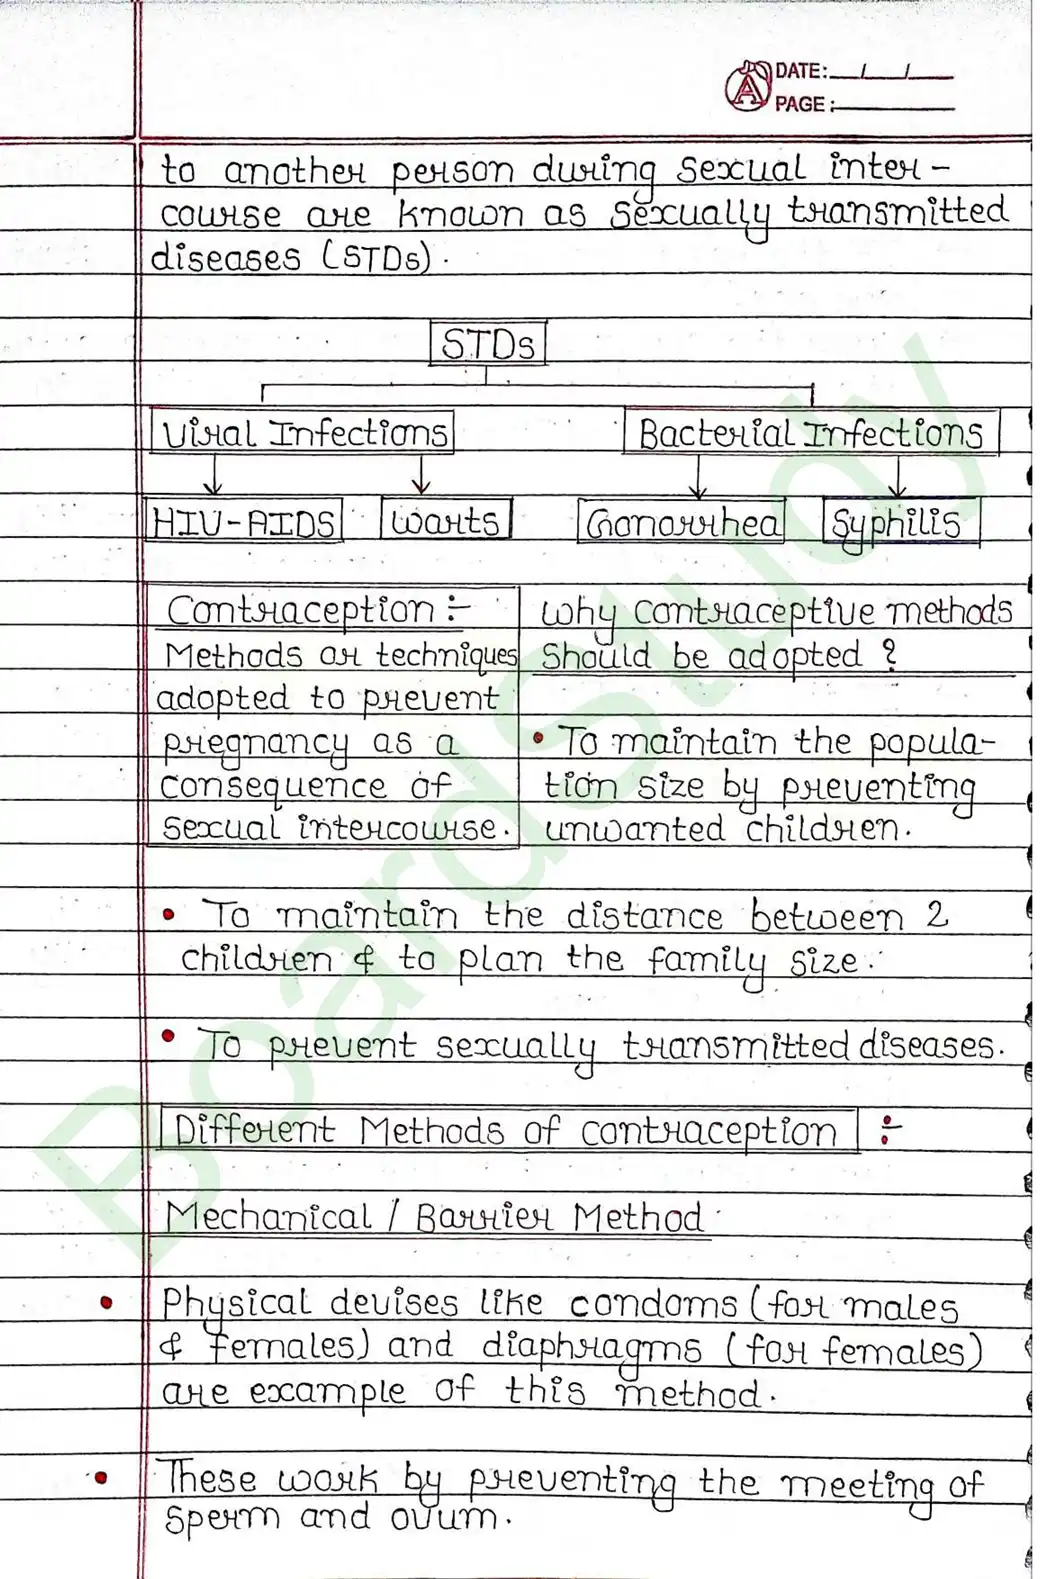 DATE: / /
PAGE:
to another person during sexual inter-
course are known as sexually transmitted
diseases (STDs).
STDs
Viral Infections
Bacterial Infections
HIV-AIDS
Warts
Gonorrhea
Syphilis
Contraception :-
Methods or techniques
adopted to prevent
pregnancy as a
consequence of
sexual intercourse.
Why contraceptive methods
should be adopted ?
• To maintain the popula-
tion size by preventing
unwanted children.
• To maintain the distance between 2
children & to plan the family size.
• To prevent sexually transmitted diseases.
Different Methods of contraception :-
Mechanical / Barrier Method
• Physical devises like condoms (for males
& females) and diaphragms (for females)
are example of this method.
• These work by preventing the meeting of
sperm and ovum.
Boardstudy